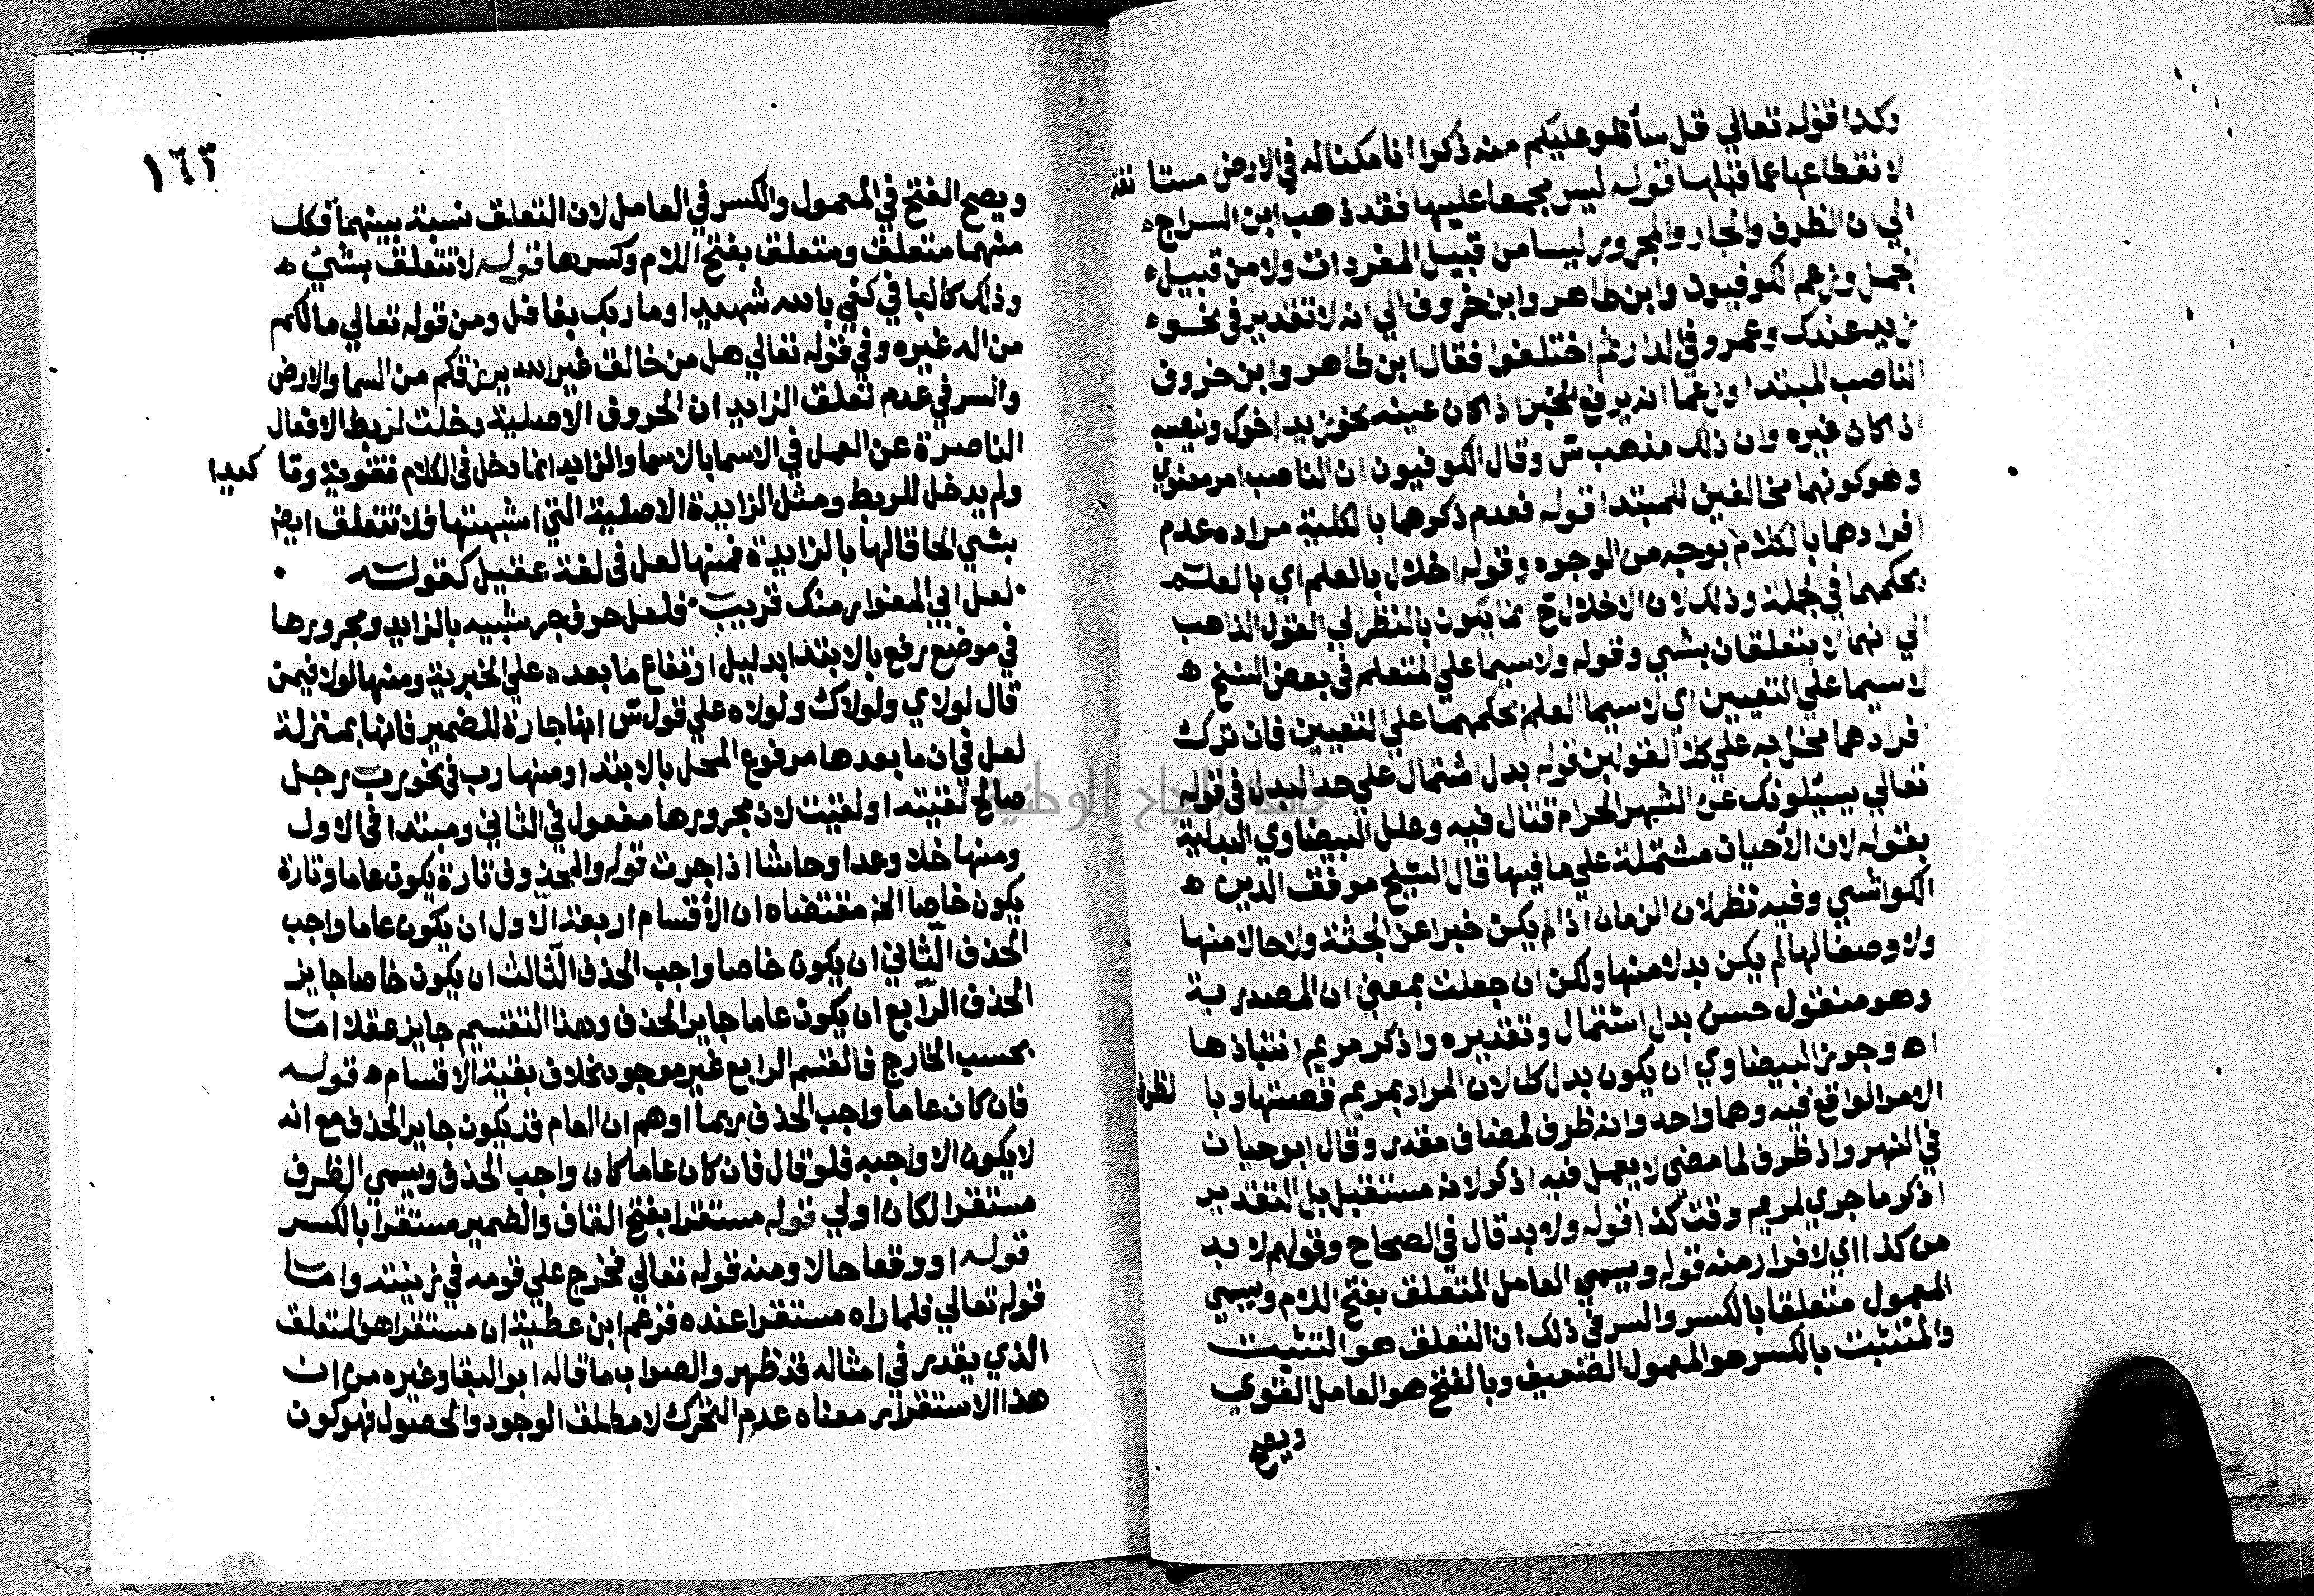 وكذا قوله تعالي قل سأتلو عليكم منه ذكرا انا مكنا له في الارض مستا نفة
لانقطاعها عما قبلها قوله ليس مجمعا عليها فقد ذهب ابن السراج
الي ان الظرف والجار والمجرور ليسا من قبيل المفردات ولا من قبيل
الجمل وزعم الكوفيون وابن طاهر وابن خروف الي انه لا تقدير في نحو
زيد عندك وعمرو في الدار ثم اختلفوا فقال ابن طاهر وابن خروف
الناصب المبتدا وزعما انه يرفع الخبر اذا كان عينه نحو زيد اخوك وينصبه
اذا كان غيره وان ذلك مذهب س وقال الكوفيون ان الناصب امر معنوي
وهو كونهما مخالفين للمبتدا قوله فعدم ذكرهما بالكلية مراده عدم
افرادهما بالكلام بوجه من الوجوه وقوله اخلال بالعلم اي بالعلم
بحكمهما في الجملة وذلك لان الاخلال ح انما يكون بالنظر الي القول الذاهب
الي انهما لا يتعلقان بشي وقوله ولاسيما علي المتعلم في بعض النسخ
لاسيما علي التعيين اي لاسيما العلم بحكمهما علي التعيين فان ترك
افرادهما مخل به علي كلا القولين قوله بدل اشتمال علي حد البدل في قوله
تعالي يسئلونك عن الشهر الحرام قتال فيه وعلل البيضاوي البدلية
بقوله لان الأحيان مشتملة علي ما فيها قال الشيخ موفق الدين
الكواشي وفيه نظر لان الزمان اذا لم يكن خبرا عن الجثة ولا حالا منها
ولا وصفا لها لم يكن بدلا منها ولكن ان جعلت بمعني ان المصدرية
وهو منقول حسن بدل اشتمال وتقديره واذكر مريم انتباذها
اه وجوز البيضاوي ان يكون بدل كل لان المراد بمريم قصتها وبا لظرف
الامر الواقع فيه وهما واحد وانه ظرف لمضاف مقدر وقال ابو حيان
في النهر واذ ظرف لما مضي لا يعمل فيه اذكر لانه مستقبل بل التقدير
اذكر ما جري لمريم وقت كذا قوله ولا بد قال في الصحاح وقولهم لا بد
من كذا اي لا فرار منه قوله ويسمي العامل المتعلق بفتح اللام ويسمي
المعمول متعلقا بالكسر والسر في ذلك ان التعلق هو التشبث
والمتشبث بالكسر هو المعمول الضعيف وبالفتح هو العامل القوي
ويصح
١٦٣
ويصح الفتح في المعمول والكسر في العامل لان التعلق نسبة بينهما فكل
منهما متعلق ومتعلق بفتح اللام وكسرها قوله لا تتعلق بشيء
وذلك كالبا في كفي بالله شهيدا وما ربك بغافل ومن قوله تعالي مالكم
من اله غيره وفي قوله تعالي هل من خالق غير الله يرزقكم من السما والارض
والسر في عدم تعلق الزايد ان الحروف الاصلية دخلت لربط الافعال
القاصرة عن العمل في الاسما بالاسما والزايد انما دخل في الكلام تقوية وتا كيدا
ولم يدخل للربط ومثل الزايدة الاصلية التي اشبهتها فلا تتعلق ايضا
بشي الحاقا لها بالزايدة فمنها لعل في لغة عقيل كقوله
لعل ابي المغوار منك قريب فلعل حرف جر شبيه بالزايد ومجرورها
في موضع رفع بالابتدا بدليل ارتفاع ما بعده علي الخبرية ومنها لولا فيمن
قال لولاي ولولاك ولولاه علي قول س انها جارة للضمير فانها بمنزلة
لعل في ان ما بعدها مرفوع المحل بالابتدا ومنها رب في نحو رب رجل
صالح لقيته او لقيت لان مجرورها مفعول في الثاني ومبتدا في الاول
ومنها خلا وعدا وحاشا اذا جرت قوله والمحذوف تارة يكون عاما وتارة
يكون خاصا الخ مقتضاه ان الأقسام اربعة الاول ان يكون عاما واجب
الحذف الثاني ان يكون خاصا واجب الحذف الثالث ان يكون خاصا جايز
الحذف الرابع ان يكون عاما جايز الحذف وهذا التقسيم جايز عقلا اما
بحسب الخارج فالقسم الرابع غير موجود بخلاف بقية الاقسام قوله
فان كان عاما واجب الحذف ربما اوهم ان العام قد يكون جايز الحذف مع انه
لا يكون الا واجبه فلو قال فان كان عاما كان واجب الحذف ويسمي الظرف
مستقرا لكان اولي قوله مستقرا بفتح القاف والضمير مستقرا بالكسر
قوله او وقعا حالا ومنه قوله تعالي فخرج علي قومه في زينته واما
قوله تعالي فلما راه مستقرا عنده فزعم ابن عطية ان مستقرا هو المتعلق
الذي يقدر في امثاله قد ظهر والصواب ما قاله ابو البقا وغيره من ان
هذا الاستقرار معناه عدم التحرك لا مطلق الوجود والحصول فهو كون
جامعة النجاح الوطنية